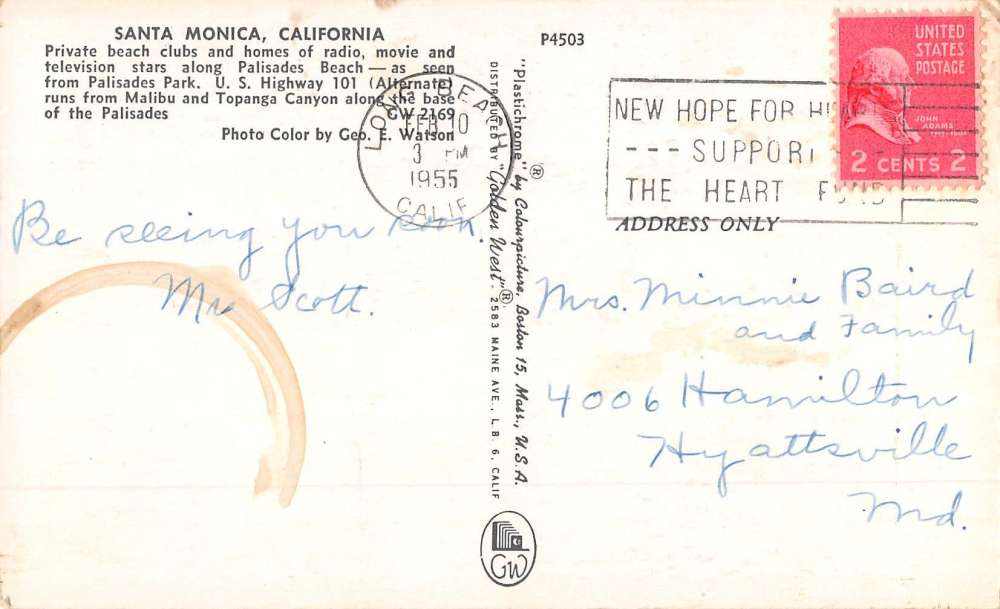 SANTA MONICA, CALIFORNIA
Private beach clubs and homes of radio, movie and
television stars along Palisades Beach — as seen
from Palisades Park. U. S. Highway 101 (Alternate)
runs from Malibu and Topanga Canyon along the base
of the Palisades GW 2169
Photo Color by Geo. E. Watson
LONG BEACH
FEB 10
3 PM
1955
CALIF
Be seeing you soon.
Mr Scott.
"Plastichrome"® by Colourpicture, Boston 15, Mass., U.S.A.
DISTRIBUTED BY "Golden West"® 2583 MAINE AVE., L. B. 6, CALIF
GW
P4503
NEW HOPE FOR
--- SUPPORT
THE HEART FUND
UNITED
STATES
POSTAGE
JOHN
ADAMS
2 CENTS 2
ADDRESS ONLY
Mrs. Minnie Baird
and Family
4006 Hamilton
Hyattsville
Md.